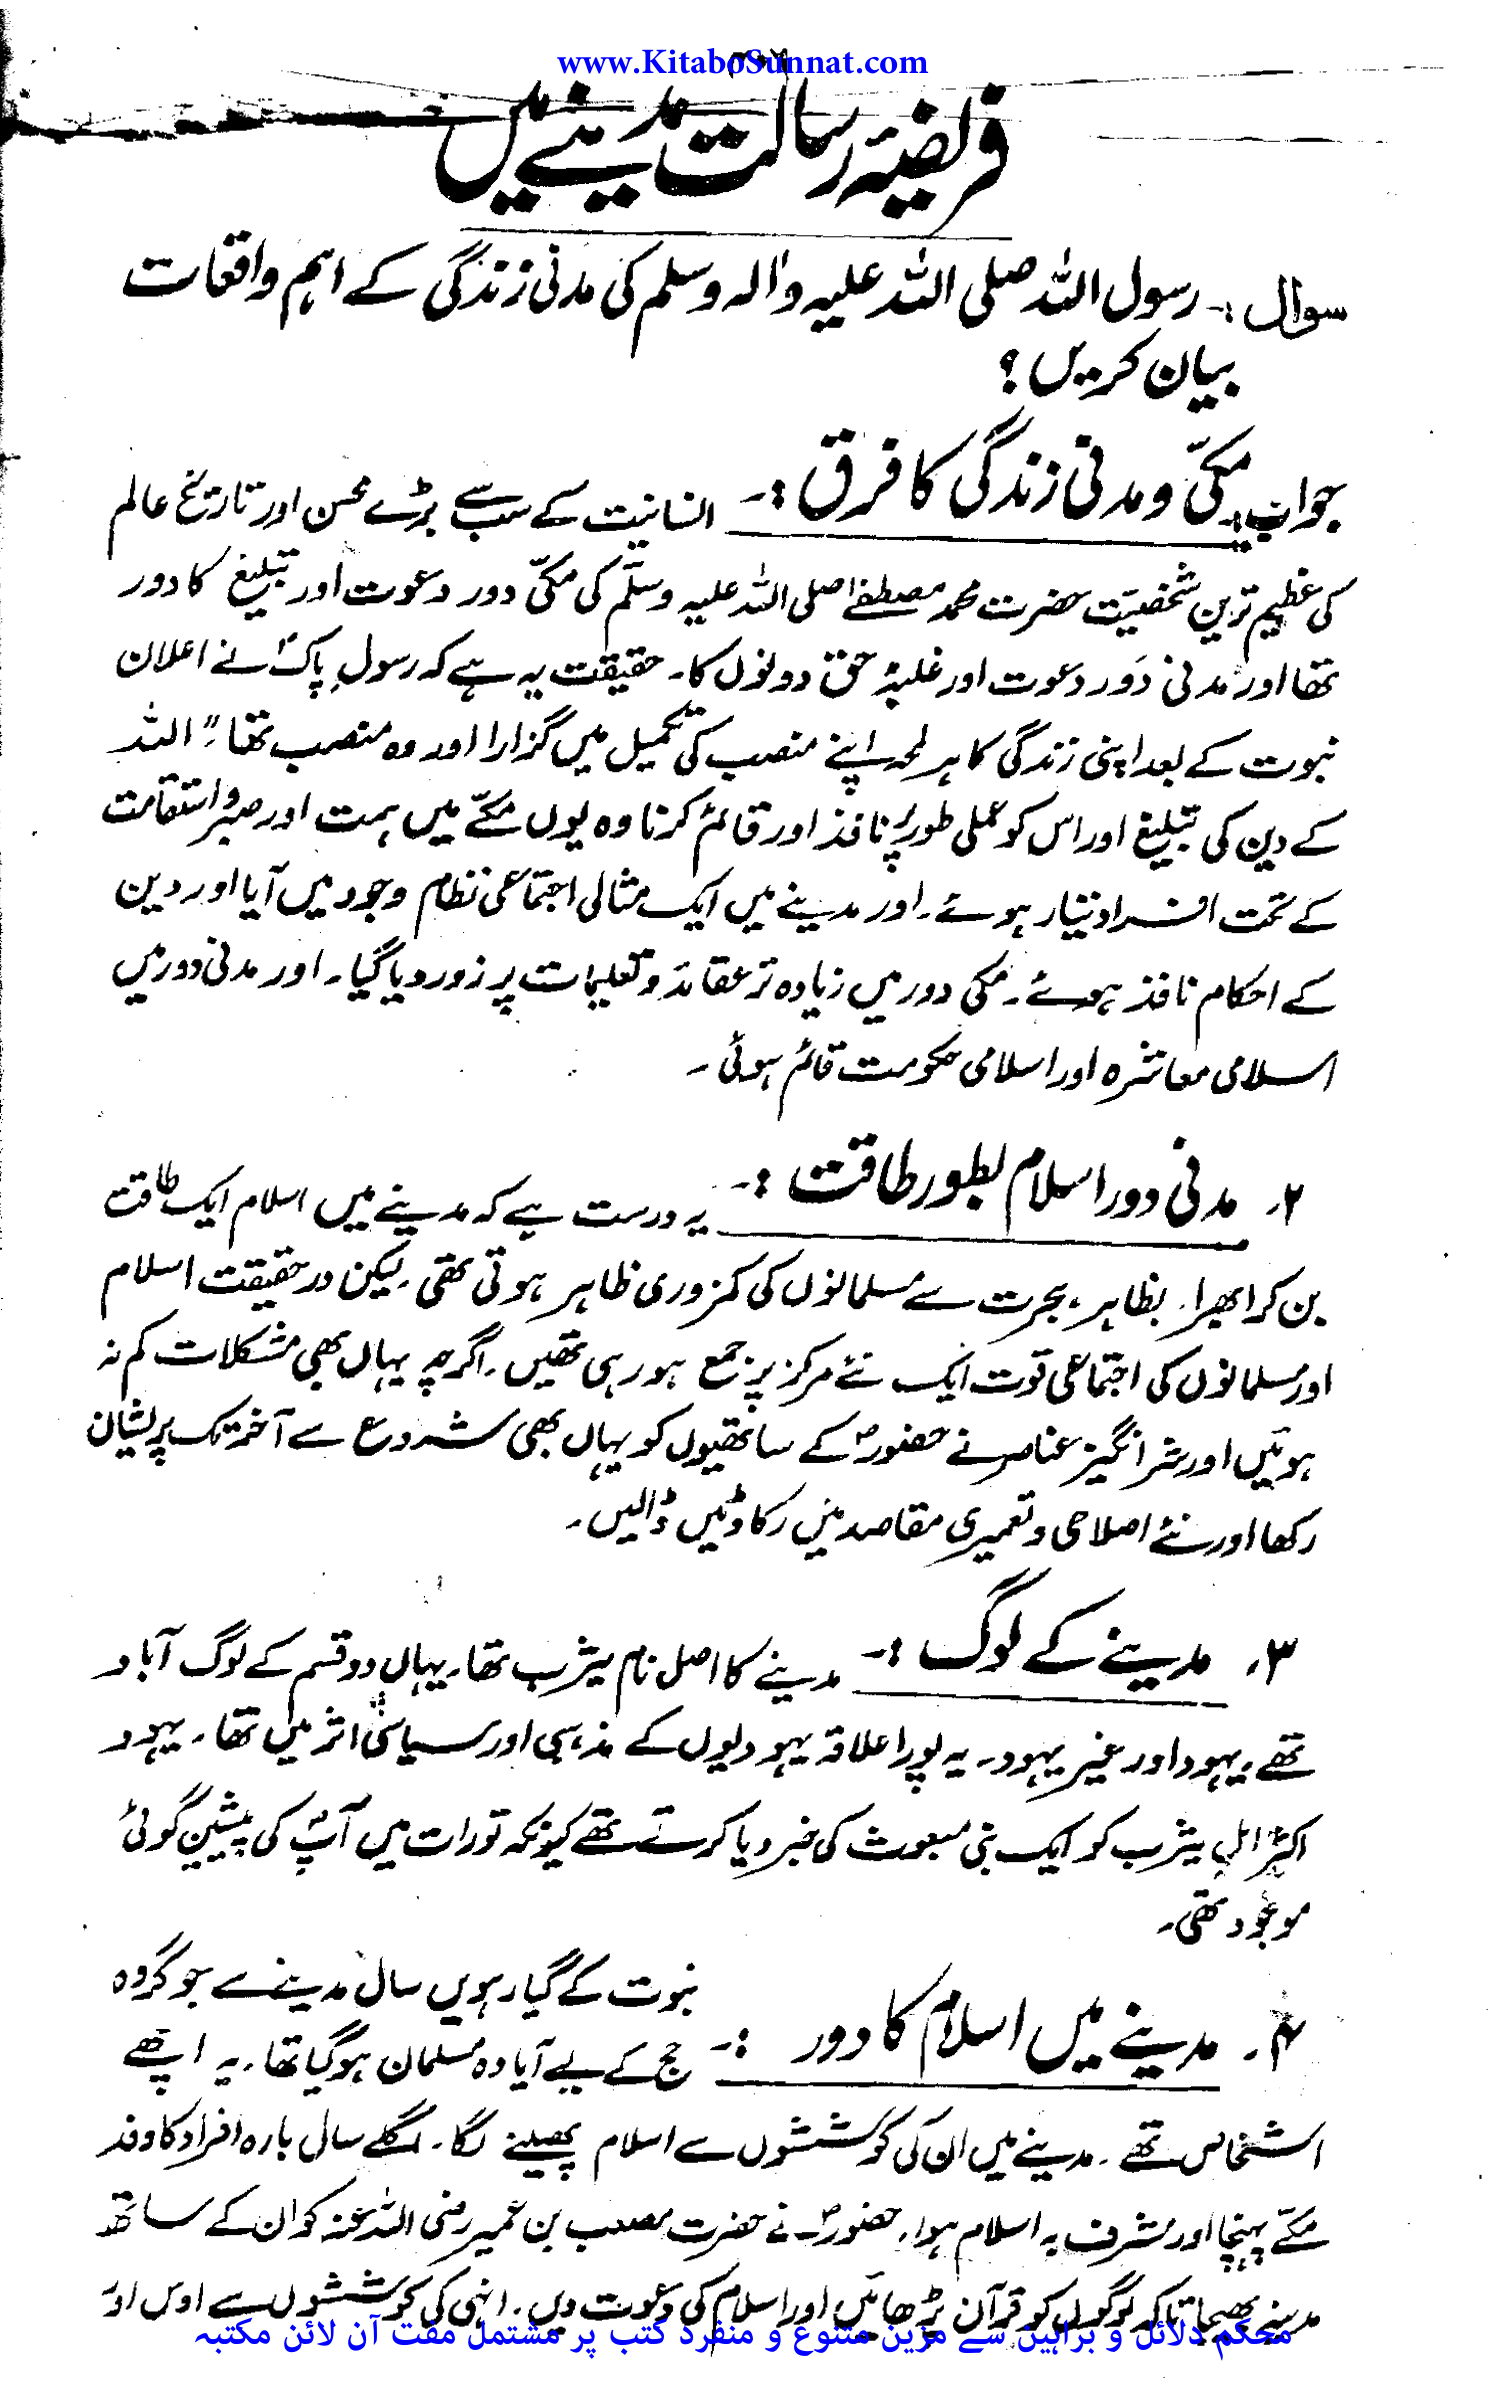 www.KitaboSunnat.com
فریضۂ رسالت مدینے میں
سوال :۔ رسول اللہ صلی اللہ علیہ واٰلہ وسلم کی مدنی زندگی کے اہم واقعات
بیان کریں؟
جواب :۔ مکّی و مدنی زندگی کا فرق :۔ انسانیت کے سب سے بڑے محسن اور تاریخ عالم
کی عظیم ترین شخصیّت حضرت محمد مصطفےٰ صلی اللہ علیہ وسلّم کی مکّی دور دعوت اور تبلیغ کا دور
تھا اور مدنی دَور دعوت اور غلبۂ حق دونوں کا۔ حقیقت یہ ہے کہ رسولِ پاکؐ نے اعلان
نبوت کے بعد اپنی زندگی کا ہر لمحہ اپنے منصب کی تکمیل میں گزارا اور وہ منصب تھا۔ " اللہ
کے دین کی تبلیغ اور اس کو عملی طور پر نافذ اور قائم کرنا وہ یوں مکّے میں ہمت اور صبر و استقامت
کے تحت افراد تیار ہوئے۔ اور مدینے میں ایک مثالی اجتماعی نظام وجود میں آیا اور دین
کے احکام نافذ ہوئے۔ مکی دور میں زیادہ تر عقائد و تعلیمات پر زور دیا گیا۔ اور مدنی دور میں
اسلامی معاشرہ اور اسلامی حکومت قائم ہوئی ۔
۲۔ مدنی دور اسلام بطور طاقت :۔ یہ درست ہے کہ مدینے میں اسلام ایک طاقت
بن کر ابھرا۔ بظاہر، ہجرت سے مسلمانوں کی کمزوری ظاہر ہوتی تھی۔ لیکن درحقیقت اسلام
اور مسلمانوں کی اجتماعی قوت ایک نئے مرکز پر جمع ہو رہی تھیں۔ اگرچہ یہاں بھی مشکلات کم نہ
ہوئیں اور شر انگیز عناصر نے حضورؐ کے ساتھیوں کو یہاں بھی شروع سے آخر تک پریشان
رکھا اور نئے اصلاحی و تعمیری مقاصد میں رکاوٹیں ڈالیں۔
۳۔ مدینے کے لوگ :۔ مدینے کا اصل نام یثرب تھا۔ یہاں دو قسم کے لوگ آباد
تھے۔ یہود اور غیر یہود۔ یہ پورا علاقہ یہودیوں کے مذہبی اور سیاسی اثر میں تھا۔ یہود
اکثر اہلِ یثرب کو ایک نبی مبعوث کی خبر دیا کرتے تھے کیونکہ تورات میں آپؐ کی پیشین گوئی
موجود تھی۔
۴۔ مدینے میں اسلام کا دور :۔ نبوت کے گیارہویں سال مدینے سے جو گروہ
حج کے لیے آیا وہ مسلمان ہو گیا تھا۔ یہ اچھے
اشخاص تھے۔ مدینے میں ان کی کوششوں سے اسلام پھیلنے لگا۔ اگلے سال بارہ افراد کا وفد
مکّے پہنچا اور مشرف بہ اسلام ہوا۔ حضورؐ نے حضرت مصعب بن عمیر رضی اللہ عنہ کو ان کے ساتھ
مدینے بھیجا تاکہ لوگوں کو قرآن پڑھائیں اور اسلام کی دعوت دیں۔ انہی کی کوششوں سے اوس اور
محکم دلائل و براہین سے مزین متنوع و منفرد کتب پر مشتمل مفت آن لائن مکتبہ